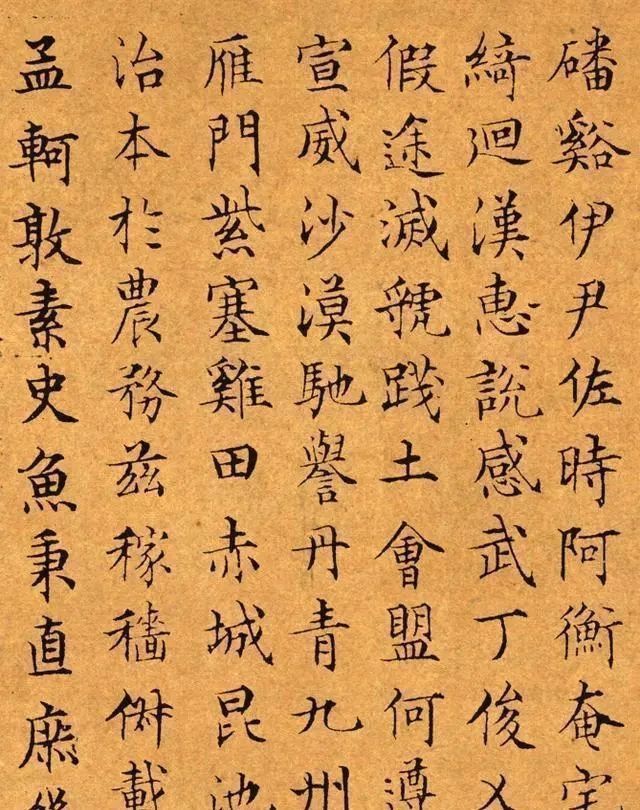 磻谿伊尹佐時阿衡奄宅
綺迴漢惠說感武丁俊乂
假途滅虢踐土會盟何遵
宣威沙漠馳譽丹青九州
雁門紫塞雞田赤城昆池
治本於農務茲稼穡俶載
孟軻敦素史魚秉直庶